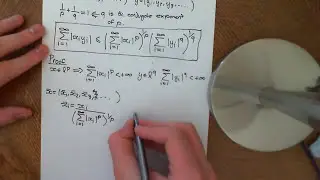 1/p + 1/q = 1 ← q is the conjugate exponent
of p.
∑_{i=1}^{∞} |x_i y_i| ≤ (∑_{i=1}^{∞} |x_i|^p)^{1/p} (∑_{i=1}^{∞} |y_i|^q)^{1/q}
Proof
x ∈ ℓ^p ⟹ ∑_{i=1}^{∞} |x_i|^p < +∞ y ∈ ℓ^q ∑_{i=1}^{∞} |y_i|^q < +∞
x = (x_1, x_2, x_3, ...)
z_i = x_i / (∑_{i=1}^{∞} |x_i|^p)^{1/p}